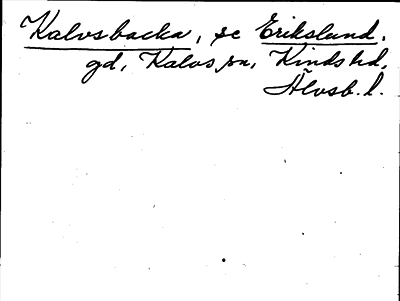 Kalvsbacka, se Erikslund.
gd, Kalvs sn, Kinds hd,
Älvsb. l.